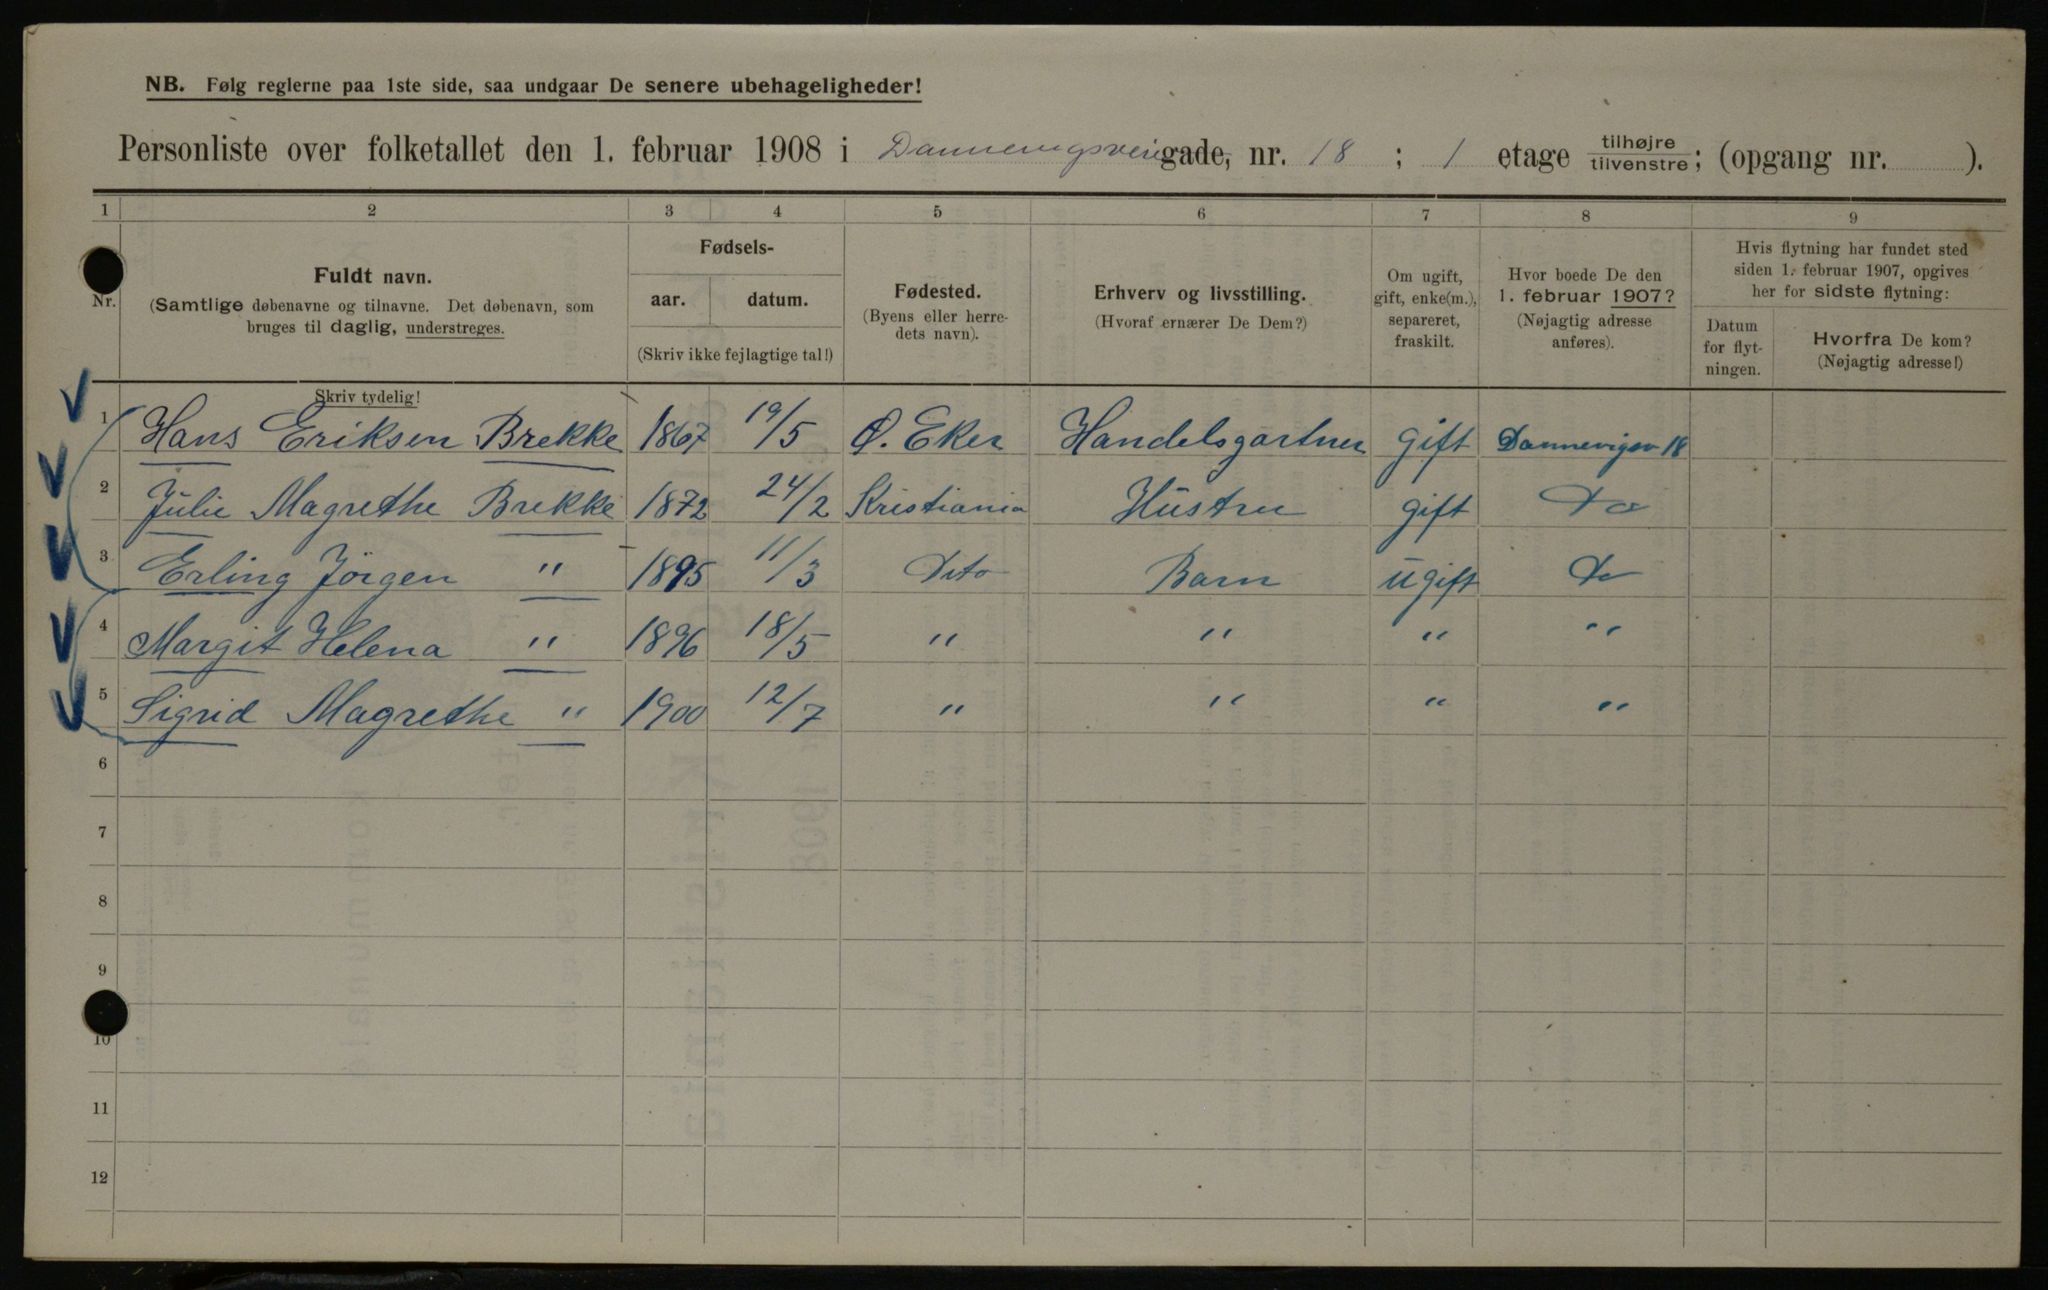 NB. Følg reglerne paa 1ste side, saa undgaar De senere ubehageligheder!
Personliste over folketallet den 1. februar 1908 i Dannevigsveien gade, nr. 18 ; 1 etage tilhøjre/tilvenstre; (opgang nr. ).
1 2 3 4 5 6 7 8 9
Nr.
Fuldt navn.
(Samtlige døbenavne og tilnavne. Det døbenavn, som
bruges til daglig, understreges.
Skriv tydelig!
Fødsels-
aar. datum.
(Skriv ikke fejlagtige tal!)
Fødested.
(Byens eller herre-
dets navn).
Erhverv og livsstilling.
(Hvoraf ernærer De Dem?)
Om ugift,
gift, enke(m.),
separeret,
fraskilt.
Hvor boede De den
1. februar 1907?
(Nøjagtig adresse
anføres).
Hvis flytning har fundet sted
siden 1. februar 1907, opgives
her for sidste flytning:
Datum
for flyt-
ningen.
Hvorfra De kom?
(Nøjagtig adresse!)
1 Hans Eriksen Brekke 1867 19/5 Ø. Eker Handelsgartner gift Dannevigsv 18
2 Julie Magrethe Brekke 1872 24/2 Kristiania Hustru gift Do
3 Erling Jörgen " 1895 11/3 Dito Barn ugift Do
4 Margit Helena " 1896 18/5 " " " "
5 Sigrid Magrethe " 1900 12/7 " " " "
6
7
8
9
10
11
12